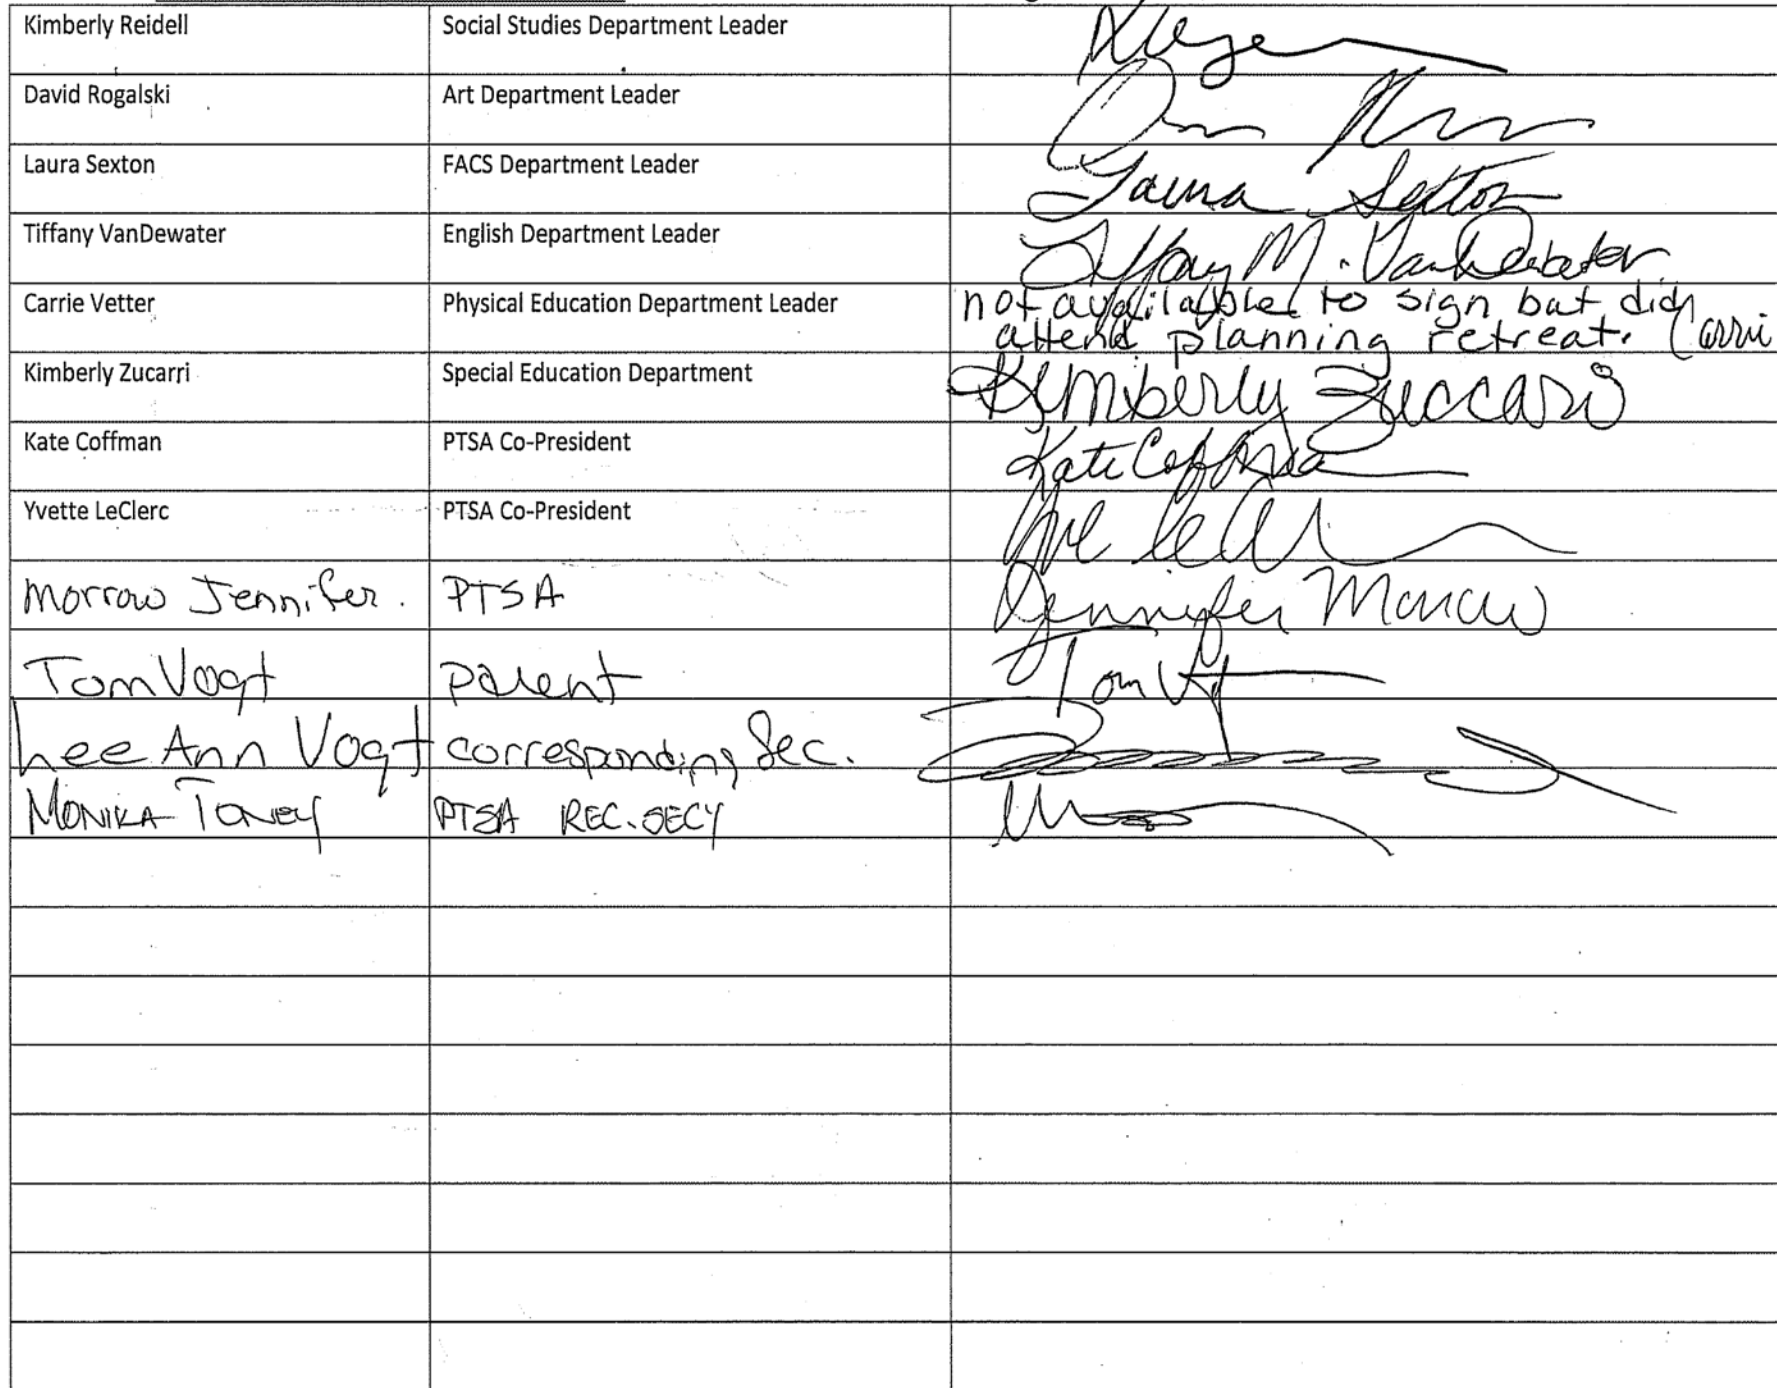 Kimberly Reidell Social Studies Department Leader
David Rogalski Art Department Leader
Laura Sexton FACS Department Leader Laura Sexton
Tiffany VanDewater English Department Leader Tiffany M. VanDewater
Carrie Vetter Physical Education Department Leader not available to sign but did
attend planning retreat. (Carrie
Kimberly Zucarri Special Education Department Kimberly Zuccari
Kate Coffman PTSA Co-President Kate Coffman
Yvette LeClerc PTSA Co-President
Morrow Jennifer. PTSA Jennifer Morrow
Tom Vogt parent Tom Vogt
Lee Ann Vogt corresponding Sec.
MONIKA TONEY PTSA REC. SECY